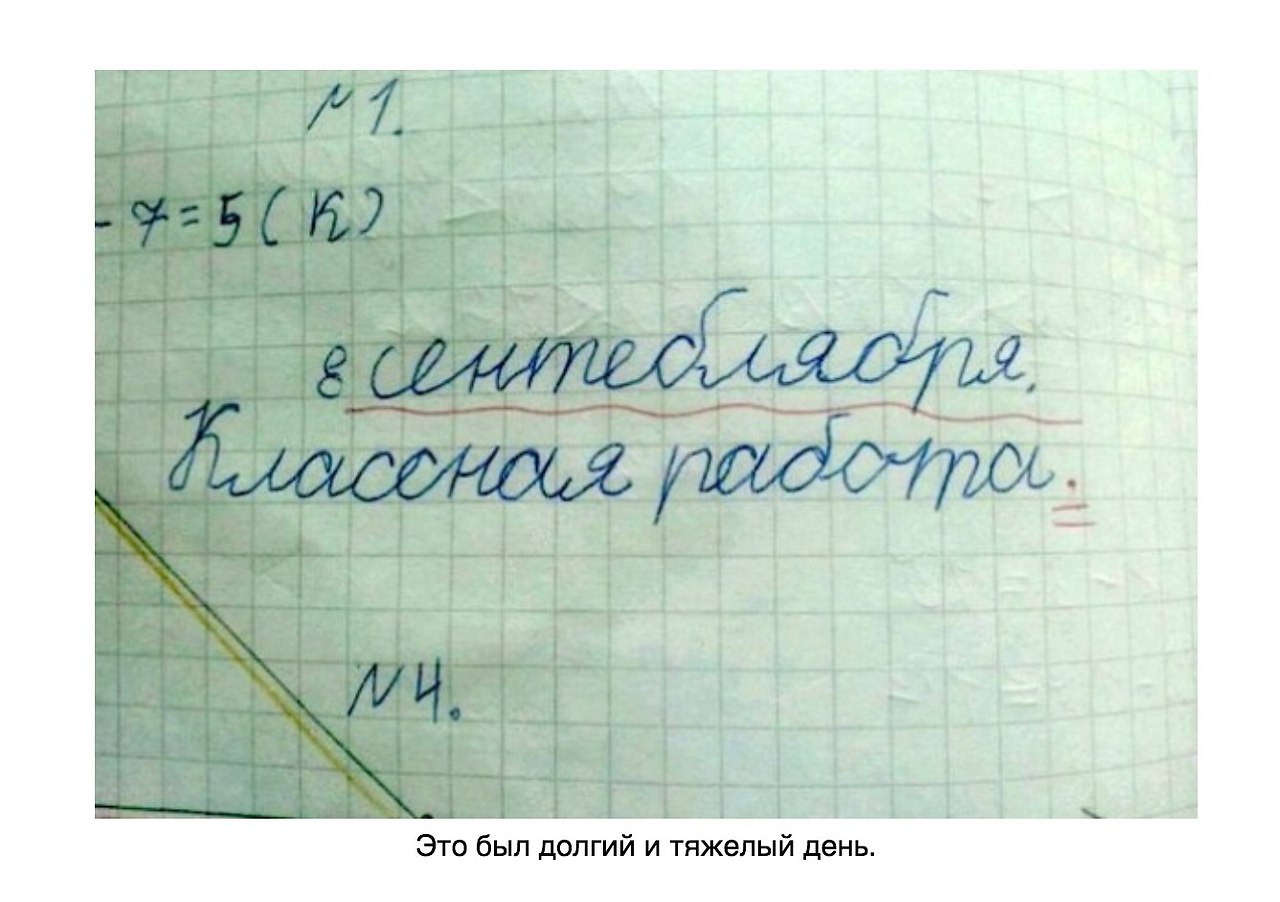 №1.
- 7 = 5 (К)
8 сентеблября.
Классная работа.
№4.
Это был долгий и тяжелый день.